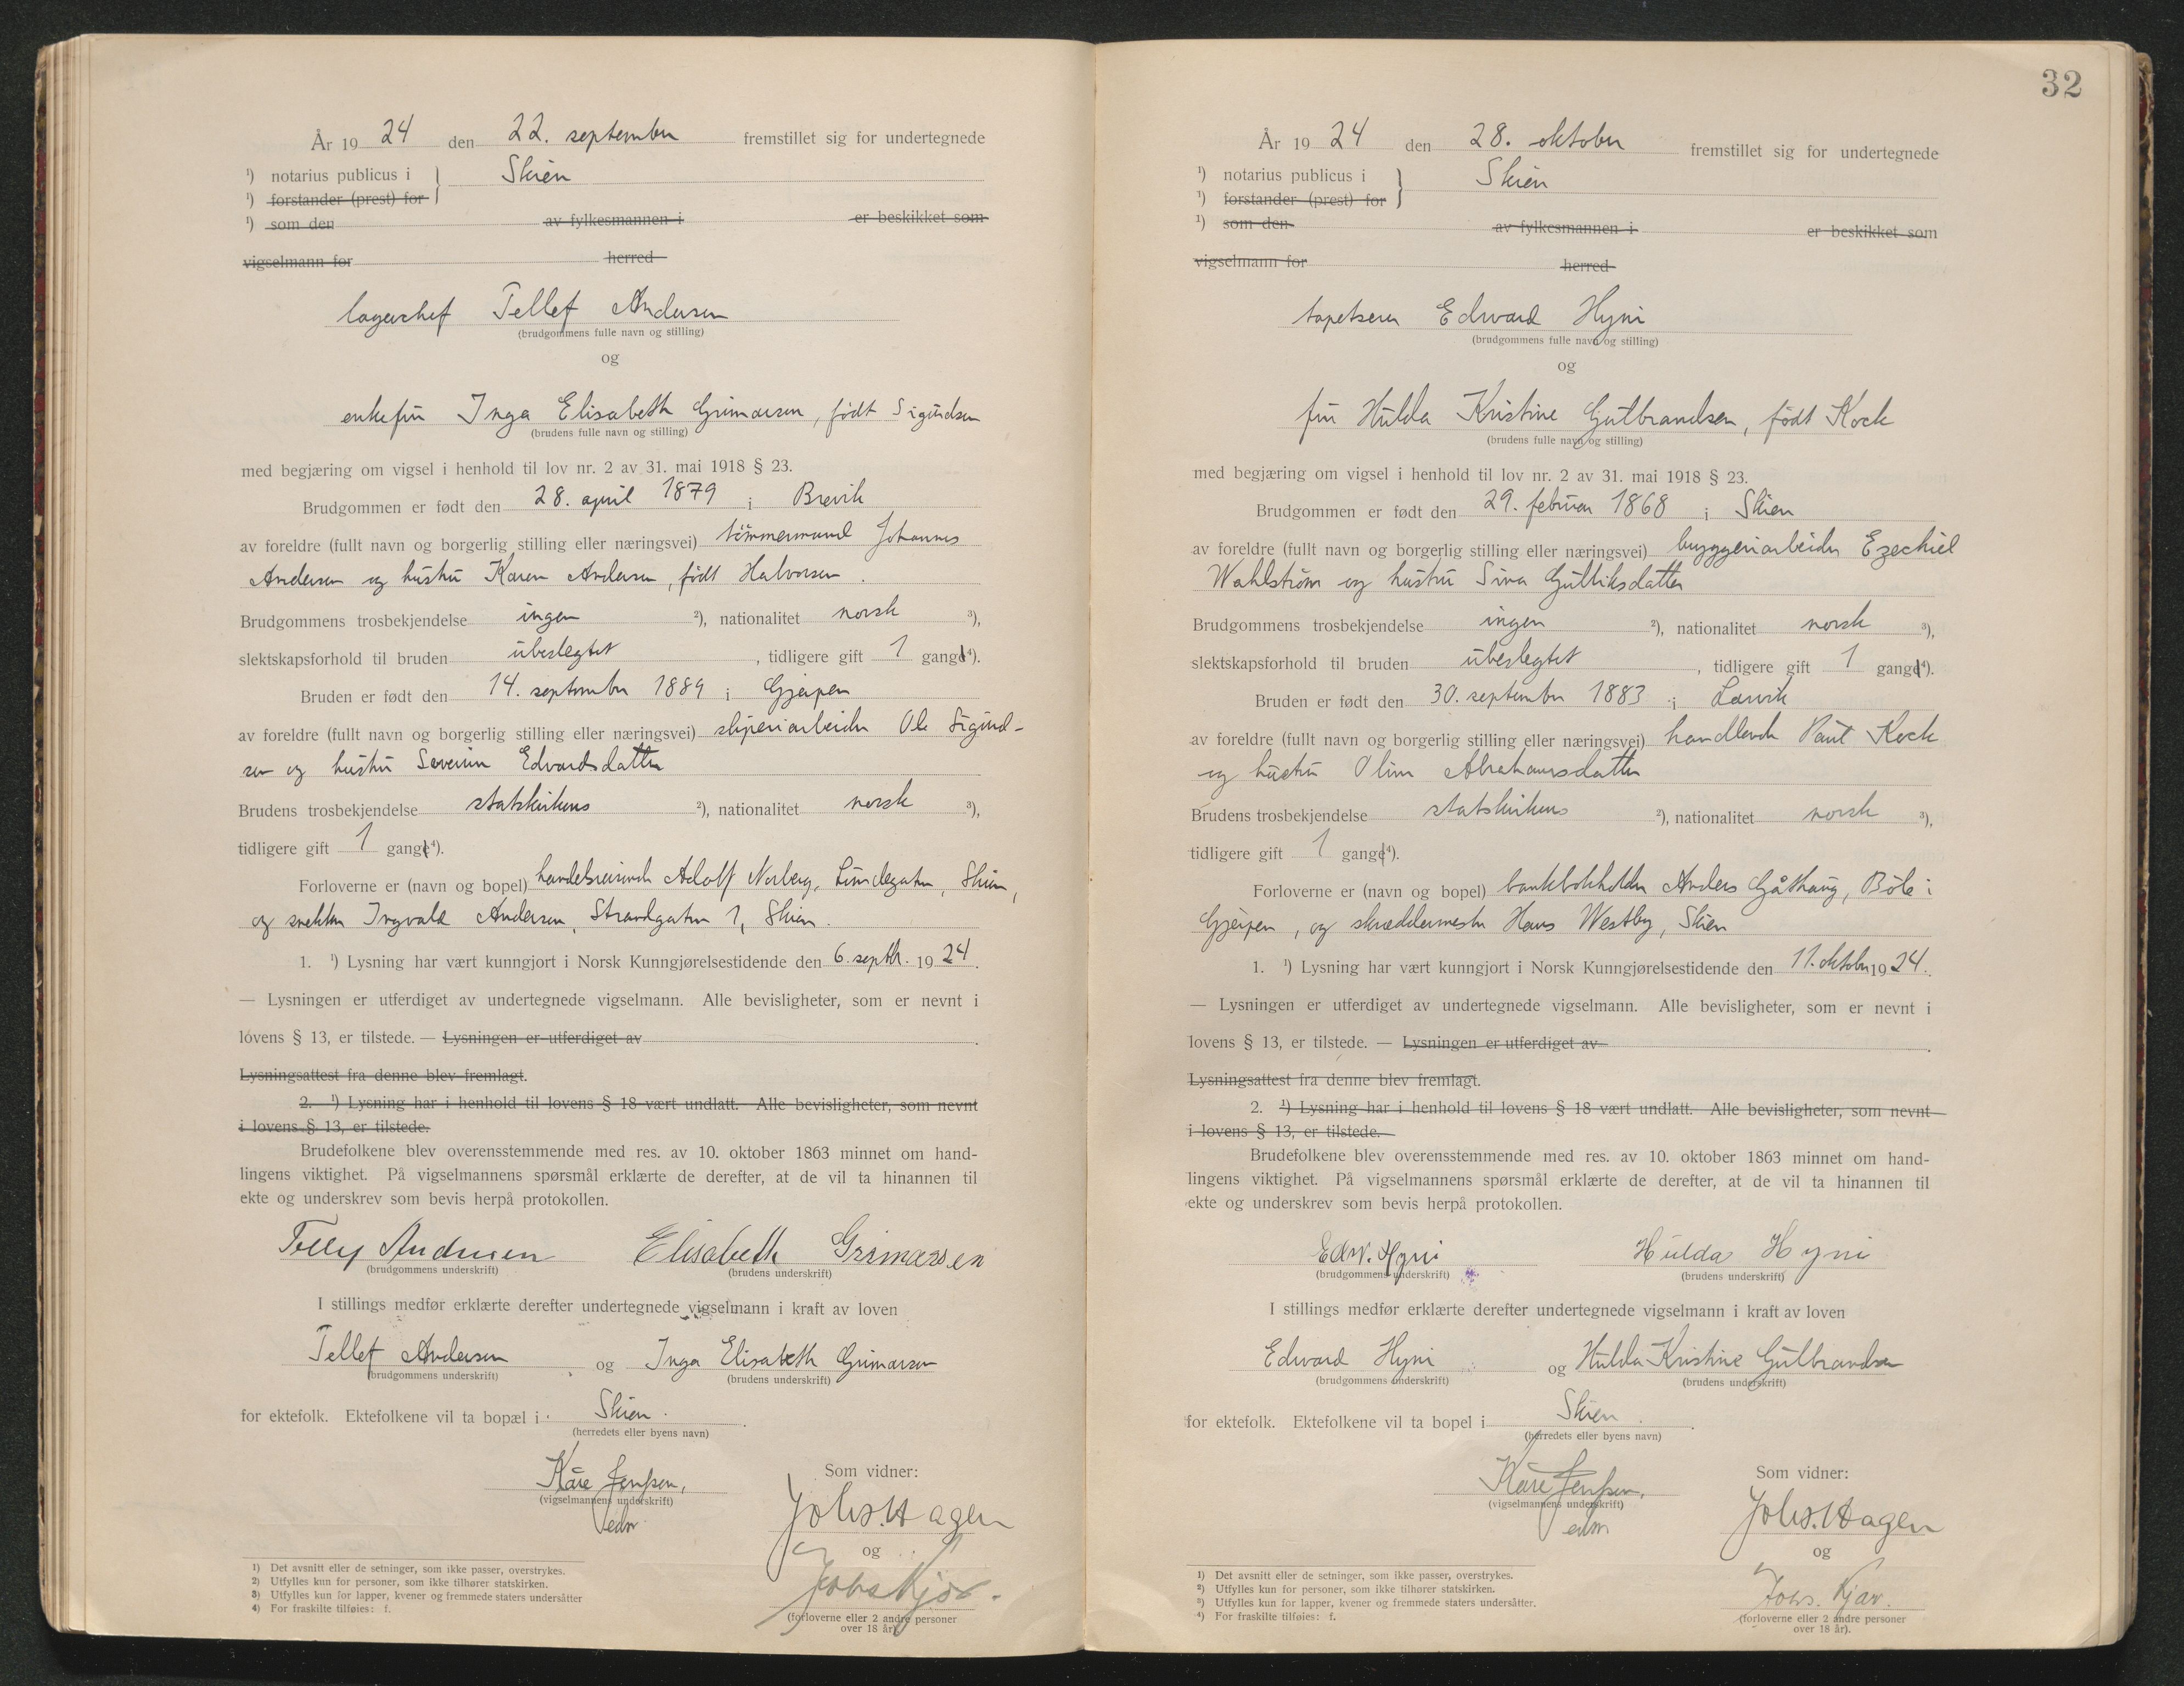 År 1924 den 22. september fremstillet sig for undertegnede
¹) notarius publicus i } Skien
¹) forstander (prest) for
¹) som den av fylkesmannen i er beskikket som
vigselmann for herred
lagerchef Tellef Andersen
(brudgommens fulle navn og stilling)
og
enkefru Inga Elisabeth Grimarsen, født Sigurdsen
(brudens fulle navn og stilling)
med begjæring om vigsel i henhold til lov nr. 2 av 31. mai 1918 § 23.
Brudgommen er født den 28. april 1879 i Brevik
av foreldre (fullt navn og borgerlig stilling eller næringsvei) tømmermand Johannes
Andersen og hustru Karen Andersen, født Halvorsen.
Brudgommens trosbekjendelse ingen ²), nationalitet norsk ³),
slektskapsforhold til bruden ubeslegtet, tidligere gift 1 gang⁴).
Bruden er født den 14. september 1889 i Gjerpen
av foreldre (fullt navn og borgerlig stilling eller næringsvei) sliperiarbeider Ole Sigurd-
sen og hustru Severine Edvardsdatter
Brudens trosbekjendelse statskirkens ²), nationalitet norsk ³),
tidligere gift 1 gang⁴).
Forloverne er (navn og bopel) handelsreisende Adolf Norberg, Lundegaten, Skien,
og snekker Ingvald Andersen, Strandgaten 1, Skien.
1. ¹) Lysning har vært kunngjort i Norsk Kunngjørelsestidende den 6. septbr. 1924.
— Lysningen er utferdiget av undertegnede vigselmann. Alle bevisligheter, som er nevnt i
lovens § 13, er tilstede. — Lysningen er utferdiget av .
Lysningsattest fra denne blev fremlagt.
2. ¹) Lysning har i henhold til lovens § 18 vært undlatt. Alle bevisligheter, som nevnt
i lovens § 13, er tilstede.
Brudefolkene blev overensstemmende med res. av 10. oktober 1863 minnet om hand-
lingens viktighet. På vigselmannens spørsmål erklærte de derefter, at de vil ta hinannen til
ekte og underskrev som bevis herpå protokollen.
Tellef Andersen Elisabeth Grimarsen
(brudgommens underskrift) (brudens underskrift)
I stillings medfør erklærte derefter undertegnede vigselmann i kraft av loven
Tellef Andersen og Inga Elisabeth Grimarsen
(brudgommens underskrift) (brudens underskrift)
for ektefolk. Ektefolkene vil ta bopæl i Skien.
(herredets eller byens navn)
Som vidner:
Kåre Jenssen,
(vigselmannens underskrift)
edm
Johs. Hagen
og
Johs Kjær.
(forloverne eller 2 andre personer
over 18 år).
1) Det avsnitt eller de setninger, som ikke passer, overstrykes.
2) Utfylles kun for personer, som ikke tilhører statskirken.
3) Utfylles kun for lapper, kvener og fremmede staters undersåtter
4) For fraskilte tilføies: f.
32
År 1924 den 28. oktober fremstillet sig for undertegnede
¹) notarius publicus i } Skien
¹) forstander (prest) for
¹) som den av fylkesmannen i er beskikket som
vigselmann for herred
tapetserer Edward Hyni
(brudgommens fulle navn og stilling)
og
fru Hulda Kristine Gulbrandsen, født Kock
(brudens fulle navn og stilling)
med begjæring om vigsel i henhold til lov nr. 2 av 31. mai 1918 § 23.
Brudgommen er født den 29. februar 1868 i Skien
av foreldre (fullt navn og borgerlig stilling eller næringsvei) bryggeriarbeider Ezechiel
Wahlstrøm og hustru Sina Gulliksdatter
Brudgommens trosbekjendelse ingen ²), nationalitet norsk ³),
slektskapsforhold til bruden ubeslegtet, tidligere gift 1 gang⁴).
Bruden er født den 30. september 1883 i Larvik
av foreldre (fullt navn og borgerlig stilling eller næringsvei) handlende Paul Kock
og hustru Oline Abrahamsdatter
Brudens trosbekjendelse statskirkens ²), nationalitet norsk ³),
tidligere gift 1 gang⁴).
Forloverne er (navn og bopel) bankbokholder Anders Gåthaug, Bøle i
Gjerpen, og skreddermester Hans Westby, Skien
1. ¹) Lysning har vært kunngjort i Norsk Kunngjørelsestidende den 11. oktober 1924.
— Lysningen er utferdiget av undertegnede vigselmann. Alle bevisligheter, som er nevnt i
lovens § 13, er tilstede. — Lysningen er utferdiget av .
Lysningsattest fra denne blev fremlagt.
2. ¹) Lysning har i henhold til lovens § 18 vært undlatt. Alle bevisligheter, som nevnt
i lovens § 13, er tilstede.
Brudefolkene blev overensstemmende med res. av 10. oktober 1863 minnet om hand-
lingens viktighet. På vigselmannens spørsmål erklærte de derefter, at de vil ta hinannen til
ekte og underskrev som bevis herpå protokollen.
Edw. Hyni Hulda Hyni
(brudgommens underskrift) (brudens underskrift)
I stillings medfør erklærte derefter undertegnede vigselmann i kraft av loven
Edward Hyni og Hulda Kristine Gulbrandsen
(brudgommens underskrift) (brudens underskrift)
for ektefolk. Ektefolkene vil ta bopel i Skien.
(herredets eller byens navn)
Som vidner:
Kåre Jenssen,
(vigselmannens underskrift)
edm
Johs. Hagen
og
Johs. Kjær.
(forloverne eller 2 andre personer
over 18 år).
1) Det avsnitt eller de setninger, som ikke passer, overstrykes.
2) Utfylles kun for personer, som ikke tilhører statskirken.
3) Utfylles kun for lapper, kvener og fremmede staters undersåtter.
4) For fraskilte tilføies: f.